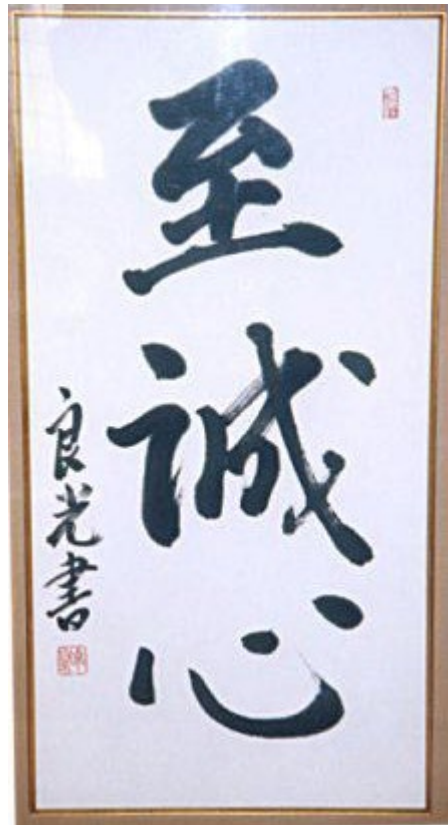 至誠心
良光書